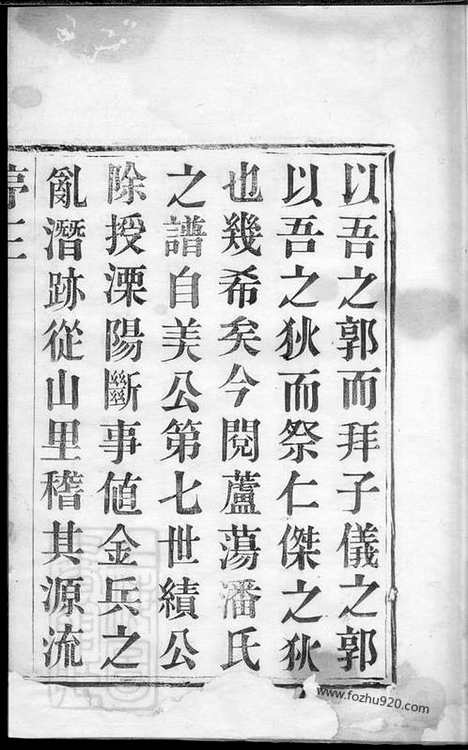 以吾之郭而拜子儀之郭
以吾之狄而祭仁傑之狄
也幾希矣今閱蘆蕩潘氏
之譜自美公第七世績公
除授溧陽斷事值金兵之
亂潛跡從山里稽其源流
www.fozhu920.com